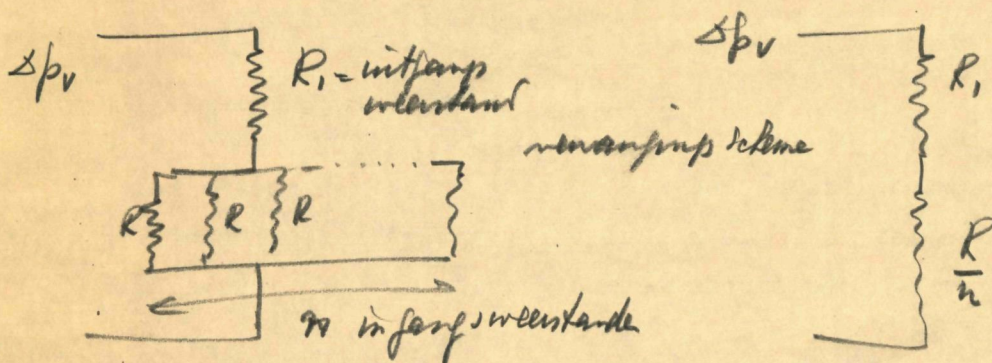 Δpv
R1 = uitgangs
weerstand
R R R
n ingangsweerstanden
vervangings schema
Δpv
R1
R
n